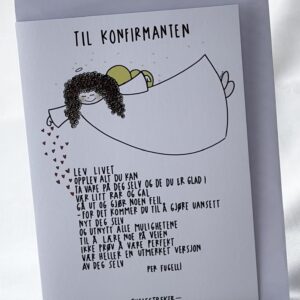 TIL KONFIRMANTEN
LEV LIVET
OPPLEV ALT DU KAN
TA VARE PÅ DEG SELV OG DE DU ER GLAD I
VÆR LITT RAR OG GAL
GÅ UT OG GJØR NOEN FEIL
- FOR DET KOMMER DU TIL Å GJØRE UANSETT
NYT DEG SELV
OG UTNYTT ALLE MULIGHETENE
TIL Å LÆRE NOE PÅ VEIEN
IKKE PRØV Å VÆRE PERFEKT
VÆR HELLER EN UTMERKET VERSJON
AV DEG SELV
PER FUGELLI